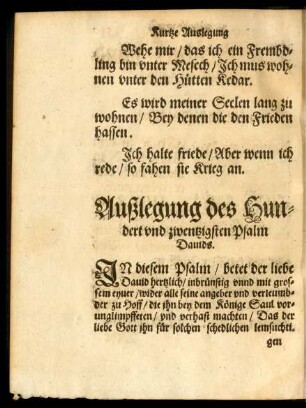 Kurtze Auslegung
Wehe mir / das ich ein Frembd-
ling bin vnter Mesech / Ich mus woh-
nen vnter den Hütten Kedar.
Es wird meiner Seelen lang zu
wohnen / Bey denen die den Frieden
hassen.
Ich halte friede / Aber wenn ich
rede / so fahen sie Krieg an.
Außlegung des Hun-
dert vnd zwentzigsten Psalm
Dauids.
IN diesem Psalm / betet der liebe
Dauid hertzlich / inbrünstig vnnd mit gros-
sem eyuer / wider alle seine angeber vnd verleumb-
der zu Hoff / die ihn bey dem Könige Saul vor-
unglimpffeten / vnd verhast machten / Das der
liebe Gott ihn für solchen schedlichen
gen